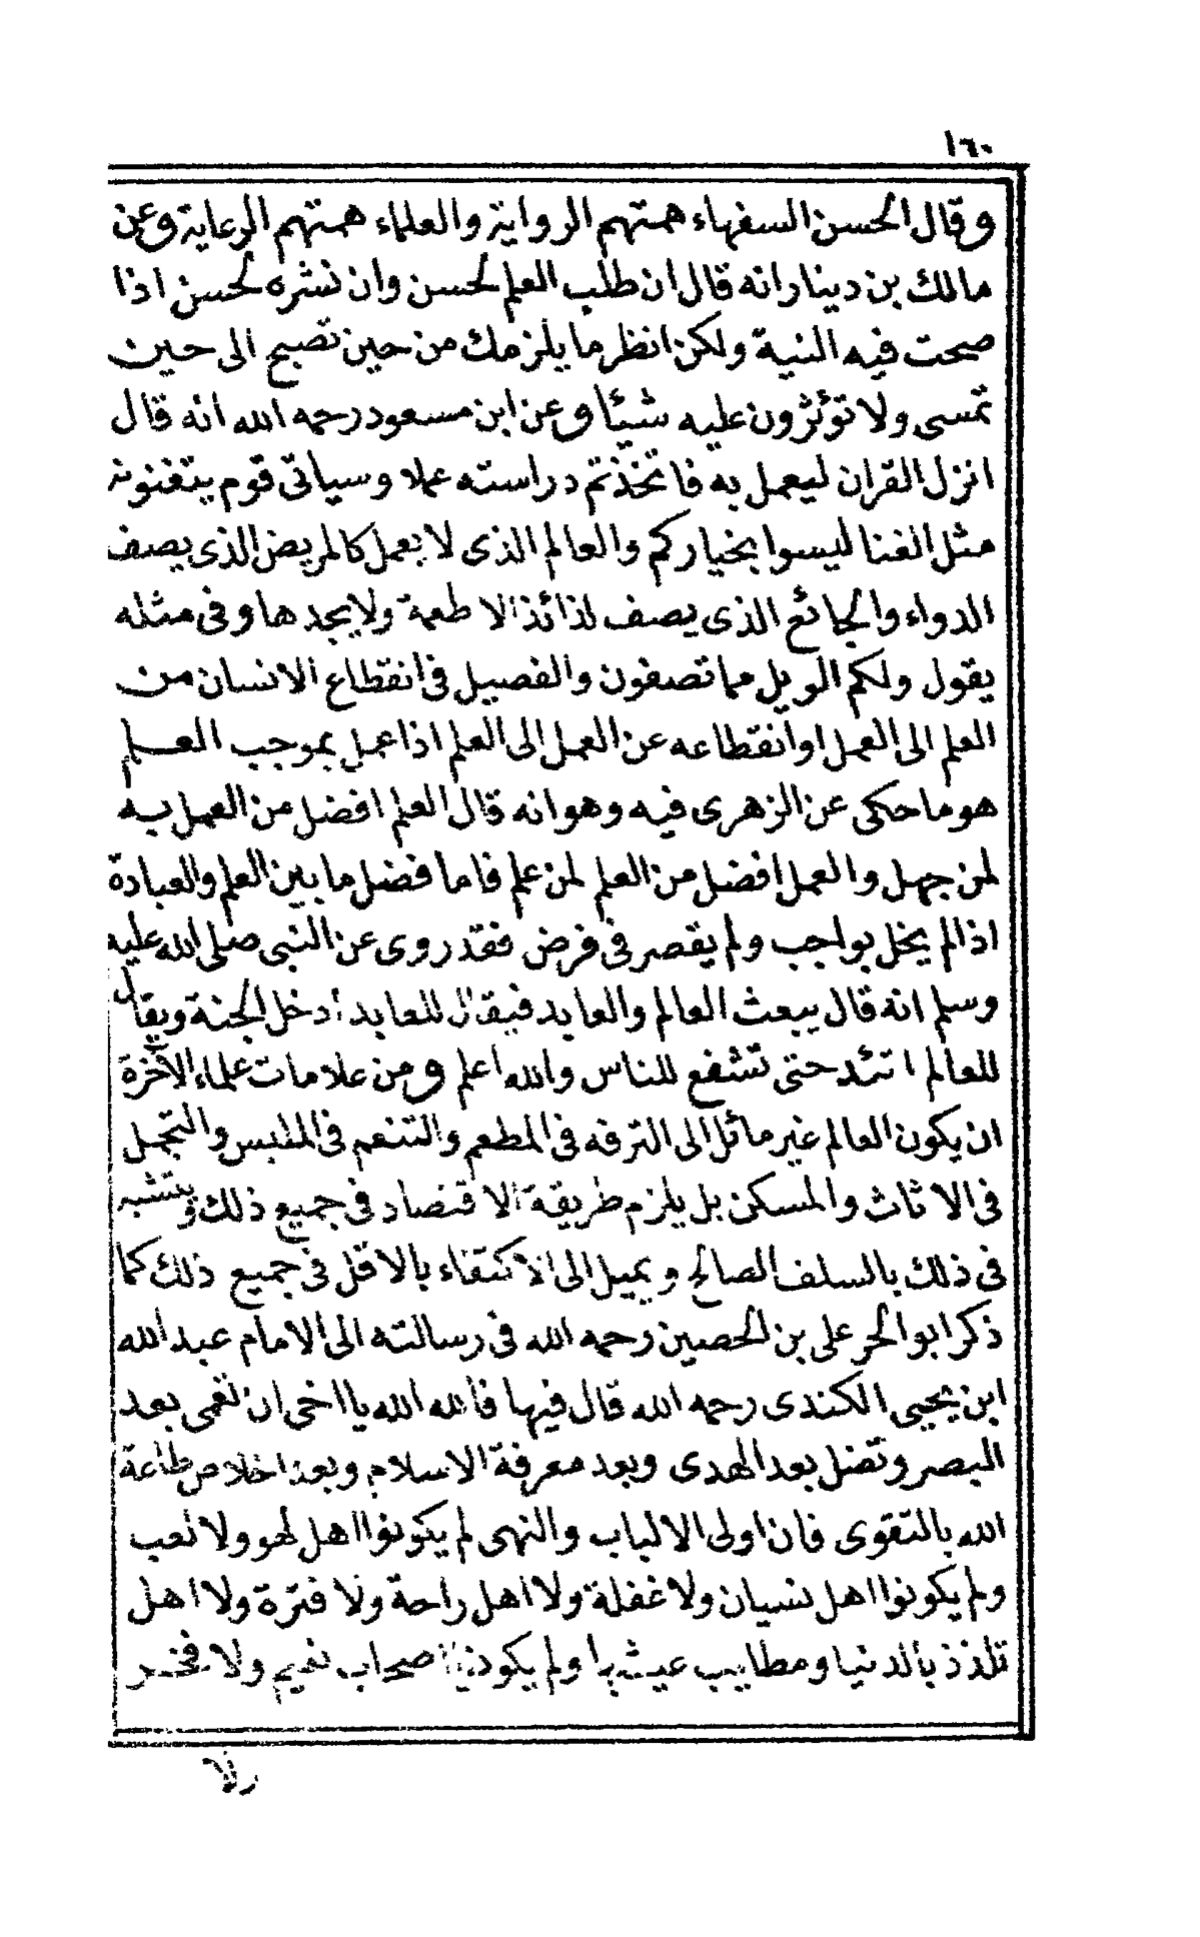 ١٦٠
وقال الحسن السفهاء همتهم الرواية والعلماء همتهم الرعاية وعن
مالك بن دينار انه قال ان طلب العلم لحسن وان نشره لحسن اذا
صحت فيه النية ولكن انظر ما يلزمك من حين تصبح الى حين
تمسى ولا تؤثرون عليه شيئا وعن ابن مسعود رحمه الله انه قال
انزل القران ليعمل به فاتخذتم دراسته عملا وسياتى قوم يتغنونه
مثل الغنا ليسوا بخياركم والعالم الذى لا يعمل كالمريض الذى يصف
الدواء والجائع الذى يصف لذائذ الاطعمة ولا يجدها وفى مثله
يقول ولكم الويل مما تصفون والفصيل فى انقطاع الانسان من
العلم الى العمل او انقطاعه عن العمل الى العلم اذا عمل بموجب العلم
هو ما حكى عن الزهرى فيه وهو انه قال العلم افضل من العمل به
لمن جهل والعمل افضل من العلم لمن علم فاما فضل ما بين العلم والعبادة
اذا لم يخل بواجب ولم يقصر فى فرض فقد روى عن النبى صلى الله عليه
وسلم انه قال يبعث العالم والعابد فيقال للعابد ادخل الجنة ويقال
للعالم اتئد حتى تشفع للناس والله اعلم ومن علامات علماء الآخرة
ان يكون العالم غير مائل الى الترفه فى المطعم والتنعم فى الملبس والتجمل
فى الاثاث والمسكن بل يلزم طريقة الاقتصاد فى جميع ذلك ويتشبه
فى ذلك بالسلف الصالح ويميل الى الاكتفاء بالاقل فى جميع ذلك كما
ذكر ابو الحر على بن الحصين رحمه الله فى رسالته الى الامام عبد الله
ابن يحيى الكندى رحمه الله قال فيها فالله الله يا اخى ان تعمى بعد
البصر وتضل بعد الهدى وبعد معرفة الاسلام وبعد اخلاص طاعة
الله بالتقوى فان اولى الالباب والنهى لم يكونوا اهل لهو ولا لعب
ولم يكونوا اهل نسيان ولا غفلة ولا اهل راحة ولا فترة ولا اهل
تلذذ بالدنيا ومطايب عيشها ولم يكونوا اصحاب نعيم ولا فخر
ولا